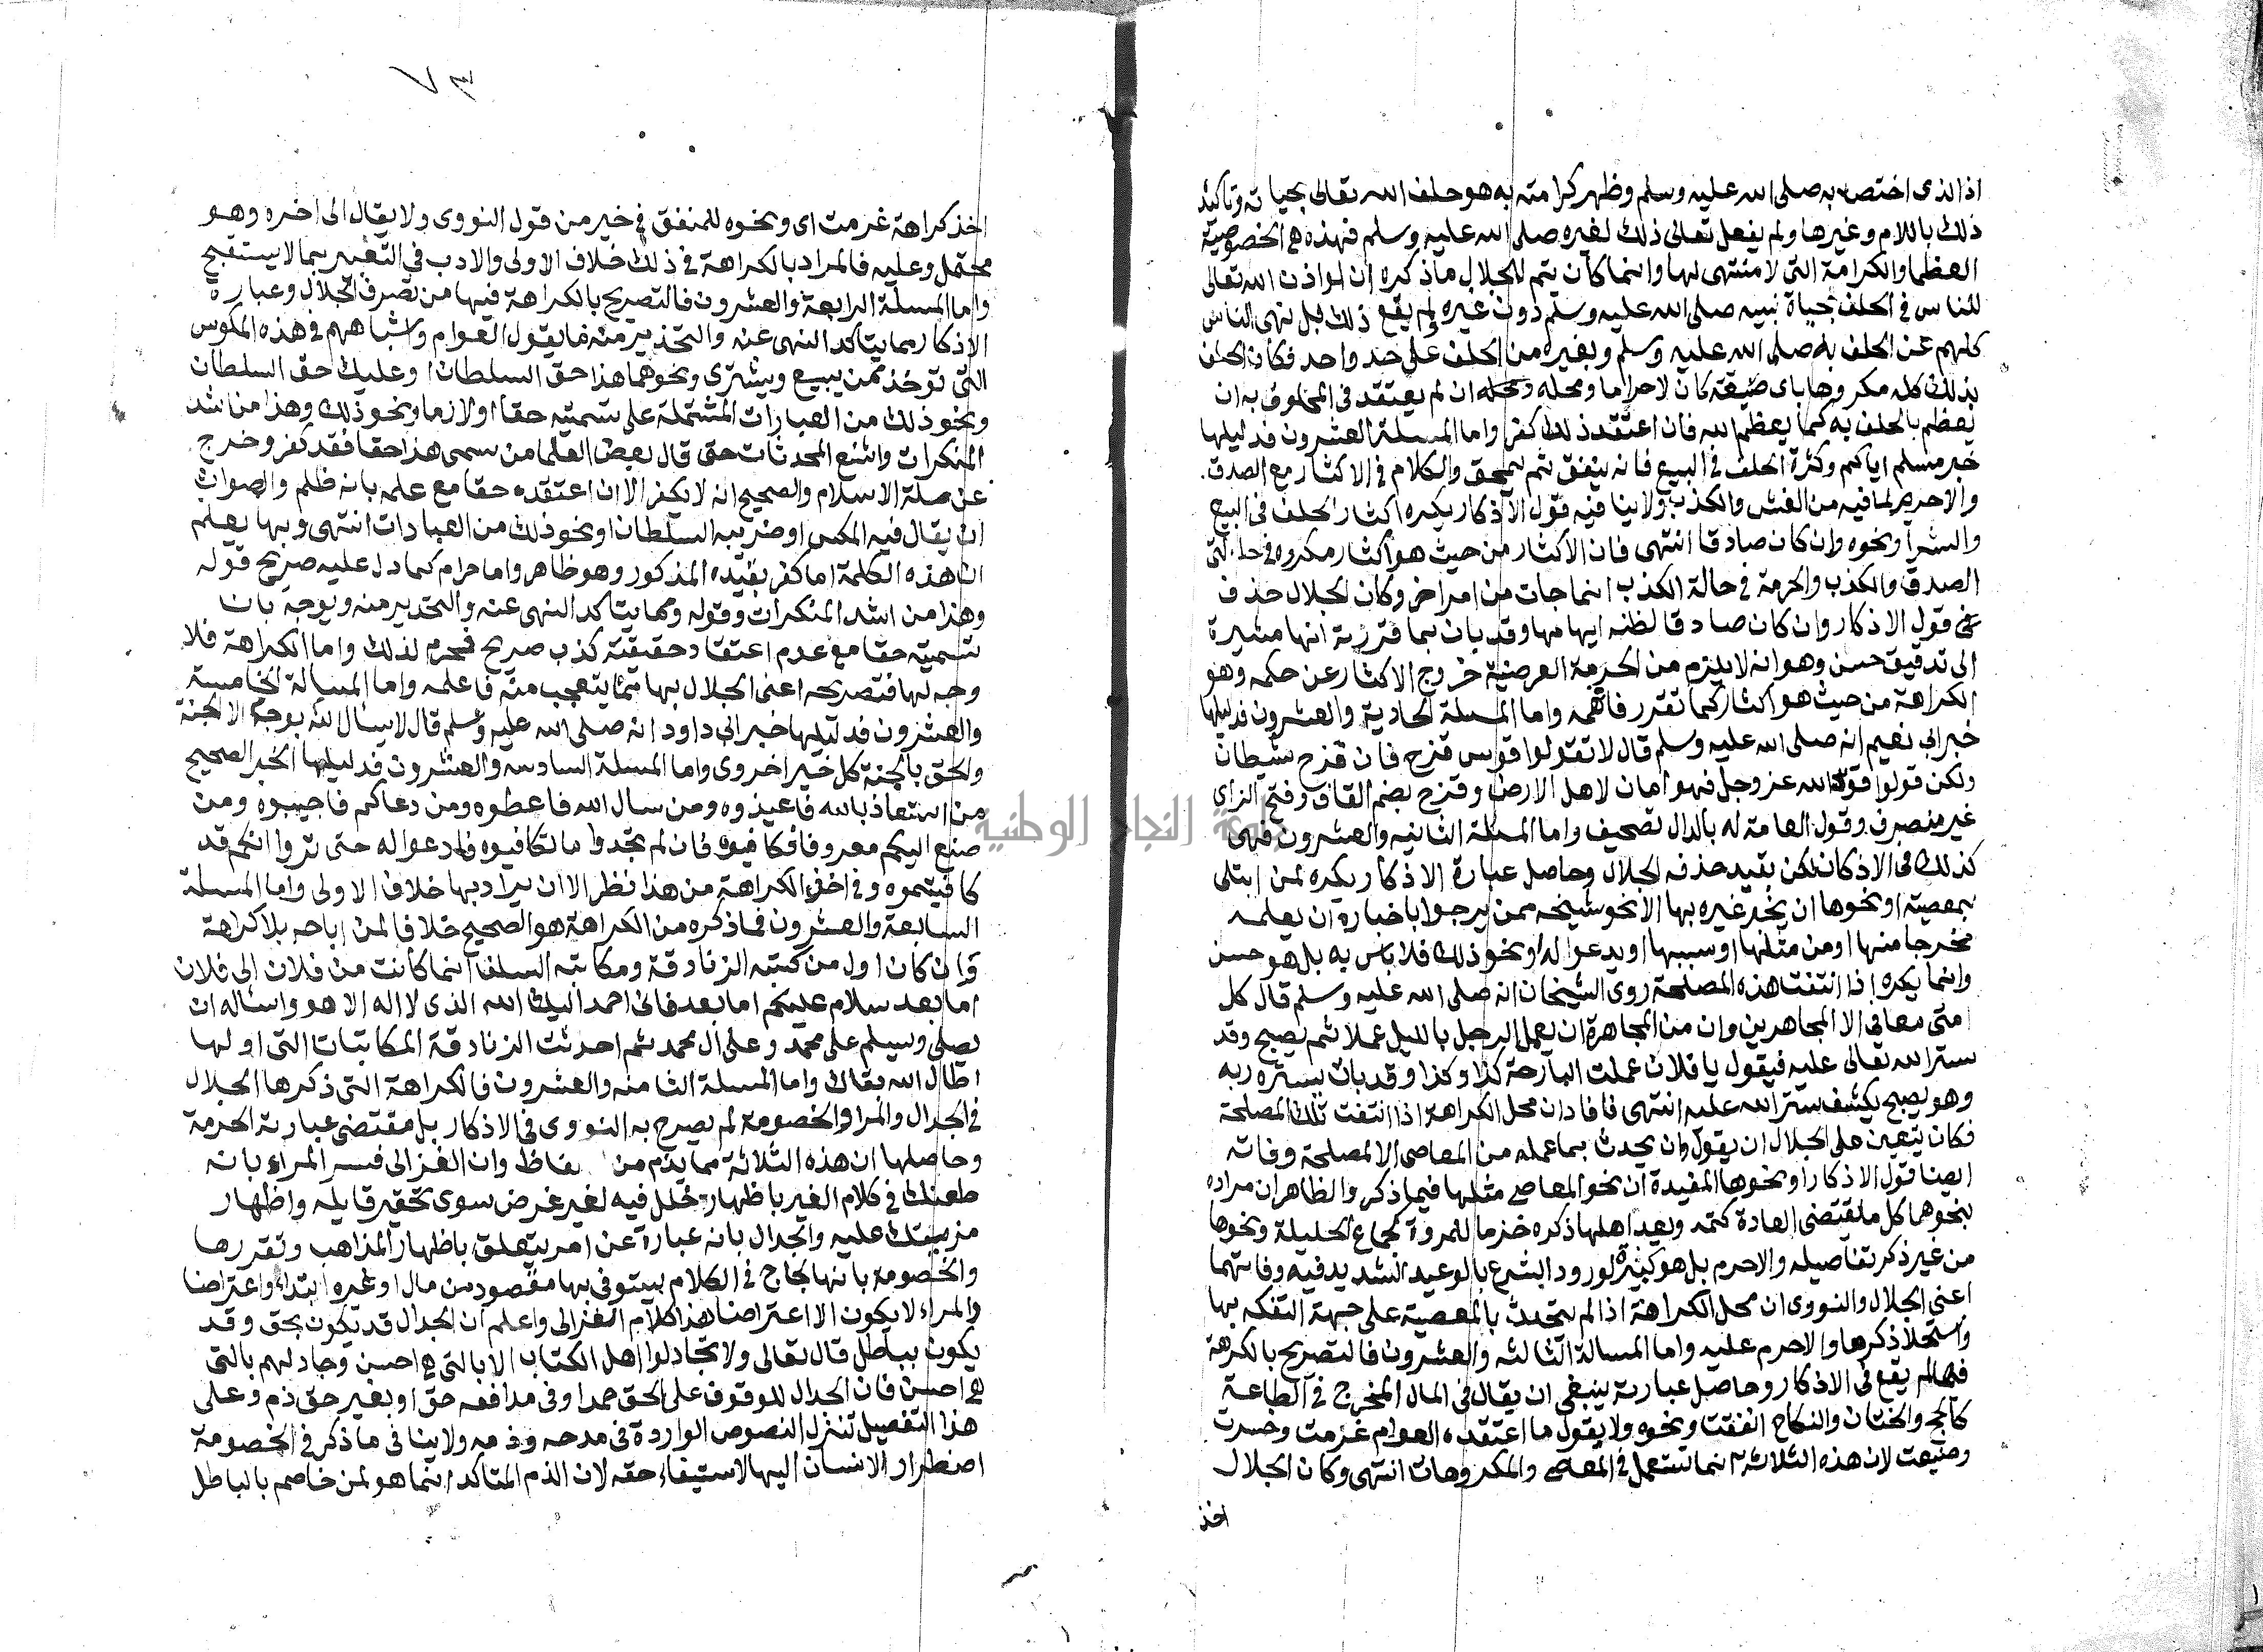 اذ الذى اختص به صلى الله عليه وسلم وظهر كرامته به هو حلف الله تعالى بحياته وتاكيد
ذلك باللام وغيرها ولم يفعل تعالى ذلك لغيره صلى الله عليه وسلم فهذه هي الخصوصية
العظما والكرامة التى لا منتهى لها وانما كان يتم للجلال ما ذكره ان لو اذن الله تعالى
للناس فى الحلف بحياة نبيه صلى الله عليه وسلم دون غيره ولم يقع ذلك بل نهى الناس
كلهم عن الحلف به صلى الله عليه وسلم وبغيره من الحلف على حد واحد فكان الحلف
بذلك كله مكروها باى صيغة كان لا حراما ومحله ان لم يعتقد فى المحلوف به ان
يعظم بالحلف به كما يعظم الله فان اعتقد ذلك كفر واما المسلة العشرون فدليلها
خبر مسلم اياكم وكثرة الحلف فى البيع فانه ينفق ثم يمحق والكلام فى الاكثار مع الصدق
والا حرم لما فيه من الغش والكذب ولا ينا فيه قول الاذكار يكره اكثار الحلف فى البيع
والشرا ونحوه وان كان صادقا انتهى فان الاكثار من حيث هو اكثار مكروه فى حالتى
الصدق والكذب والحرمة فى حالة الكذب انما جات من امر اخر وكان الجلال حذف
قول الاذكار وان كان صادقا لظنه ايهامها وقد بان بما قررته انها مشيرة
الى تدقيق حسن وهو انه لا يلزم من الحرمة العرضية خروج الاكثار عن حكمه وهو
الكراهة من حيث هو اكثار كما تقرر فافهمه واما المسلة الحادية والعشرون فدليلها
خبر ابى نعيم انه صلى الله عليه وسلم قال لا تقولوا قوس قزح فان قزح شيطان
ولكن قولوا قوس الله عز وجل فهو امان لاهل الارض وقزح بضم القاف وفتح الزاى
غير منصرف وقول العامة له بالدال تصحيف واما المسلة الثانيه والعشرون فهى
كذلك فى الاذكار لكن بقيد حذفه الجلال وحاصل عبارة الاذكار يكره لمن ابتلى
بمعصية او نحوها ان يخبر غيره بها الا نحو شيخه ممن يرجوا باخباره ان يعلمه
مخرجا منها او من مثلها او سببها او يدعوا له او نحو ذلك فلا باس به بل هو حسن
وانما يكره اذا انتفت هذه المصلحة روى الشيخان انه صلى الله عليه وسلم قال كل
امتى معافى الا المجاهرين وان من المجاهرة ان يعمل الرجل بالليل عملا ثم يصبح وقد
ستر الله تعالى عليه فيقول يا فلان عملت البارحة كذا وكذا وقد بات يستره ربه
وهو يصبح يكشف ستر الله عليه انتهى فافاد ان محل الكراهة اذا انتفت تلك المصلحة
فكان يتعين على الجلال ان يقول وان يحدث بما عمله من المعاصى الا لمصلحة وفاته
ايضا قول الاذكار او نحوها المفيدة ان نحو المعاصى مثلها فيما ذكر والظاهر ان مراده
بنحوها كل ما يقتضى العادة كتمه ويعد اهلها ذكره خرما للمروة كجماع الحليلة ونحوها
من غير ذكر تفاصيله والا حرم بل هو كبيرة لورود الشرع بالوعيد الشديد فيه وفاتهما
اعنى الجلال والنووى ان محل الكراهة اذا لم يتحدث بالمعصية على جهة التفكه بها
واستحلا ذكرها والا حرم عليه واما المسالة الثالثه والعشرون فالتصريح بالكرهة
فيها لم يقع فى الاذكار وحاصل عبارته ينبغى ان يقال فى المال المخرج فى الطاعة
كالحج والختان والنكاح انفقت ونحوه ولا يقول ما اعتقده العوام غرمت وخسرت
وضيعت لان هذه الثلاثة انما تستعمل فى المعصى والمكروهات انتهى وكان الجلال
اخذ
٧٣
اخذ كراهة غرمت اى ونحوه للمنفق فى خير من قول النووى ولا يقال الى اخره وهو
محتمل وعليه فالمراد بالكراهة فى ذلك خلاف الاولى والادب فى التعبير بما لا يستقبح
واما المسلة الرابعة والعشرون فالتصريح بالكراهة فيها من تصرف الجلال وعبارة
الاذكار مما يتاكد النهى عنه والتحذير منه ما يقول العوام واشباههم فى هذه المكوس
التى توخذ ممن يبيع ويشترى ونحوهما هذا حق السلطان او عليك حق السلطان
ونحو ذلك من العبارات المشتملة على تسميته حقا او لازما ونحو ذلك وهذا من اشد
المنكرات واشنع المحدثات حتى قال بعض العلما من سمى هذا حقا فقد كفر وخرج
عن ملة الاسلام والصحيح انه لا يكفر الا ان اعتقده حقا مع علمه بانه ظلم والصواب
ان يقال فيه المكس او ضريبة السلطان او نحو ذلك من العبادات انتهى وبها يعلم
ان هذه الكلمة اما كفر بقيده المذكور وهو ظاهر واما حرام كما دل عليه صريح قوله
وهذا من اشد المنكرات وقوله ومما يتاكد النهى عنه والتحذير منه ويوجه بان
تسميته حقا مع عدم اعتقاد حقيقته كذب صريح فحرم لذلك واما الكراهة فلا
وجه لها فتصريحه اعنى الجلال بها مما يتعجب منه فاعلمه واما المسالة الخامسة
والعشرون فدليلها خبر ابى داود انه صلى الله عليه وسلم قال لا يسال لله بوجه الا الجنة
والحق بالجنة كل خير اخروى واما المسلة السادسه والعشرون فدليلها الخبر الصحيح
من استعاذ بالله فاعيذوه ومن سال الله فاعطوه ومن دعاكم فاجيبوه ومن
صنع اليكم معروفا فكافيوه فان لم تجدوا ما تكافيوه فادعوا له حتى تروا انكم قد
كافيتموه وفى اخذ الكراهة من هذا نظر الا ان يراد بها خلاف الاولى واما المسلة
السابعة والعشرون فما ذكره من الكراهة هو الصحيح خلافا لمن اباحه بلا كراهة
وان كان اول من كتبه الزنادقة ومكاتبه السلف انما كانت من فلان الى فلان
اما بعد سلام عليكم اما بعد فانى احمد اليك الله الذى لا اله الا هو واساله ان
يصلى ويسلم على محمد وعلى ال محمد ثم احدثت الزنادقة المكاتبات التى اولها
اطال الله بقاك واما المسلة الثامنه والعشرون فالكراهة التى ذكرها الجلال
فى الجدال والمرا والخصومة لم يصرح به النووى فى الاذكار بل مقتضى عبارته الحرمة
وحاصلها ان هذه الثلاثة مما يذم من فاظ وان الغزالى فسر المراء بانه
طعنك فى كلام الغير باظهار خلل فيه لغير غرض سوى تحقير قايله واظهار
مزيتك عليه والجدال بانه عبارة عن امر يتعلق باظهار المذاهب وتقررها
والخصومة بانها لجاج فى الكلام ليستوفى بها مقصود من مال او غيره ابتداء واعتراضا
والمراء لا يكون الا اعتراضا هذا كلام الغزالى واعلم ان الجدال قد يكون بحق وقد
يكون بباطل قال تعالى ولا تجادلوا اهل الكتاب الا بالتى هى احسن وجادلهم بالتى
هى احسن فان الجدال للوقوف على الحق حمد او فى مدافعه حق او بغير حق ذم وعلى
هذا التفصيل تنزل النصوص الواردة فى مدحه وذمه ولا ينا فى ما ذكر فى الخصومة
اضطرار الانسان اليها لاستيفاء حقه لان الذم المتاكد انما هو لمن خاصم بالباطل